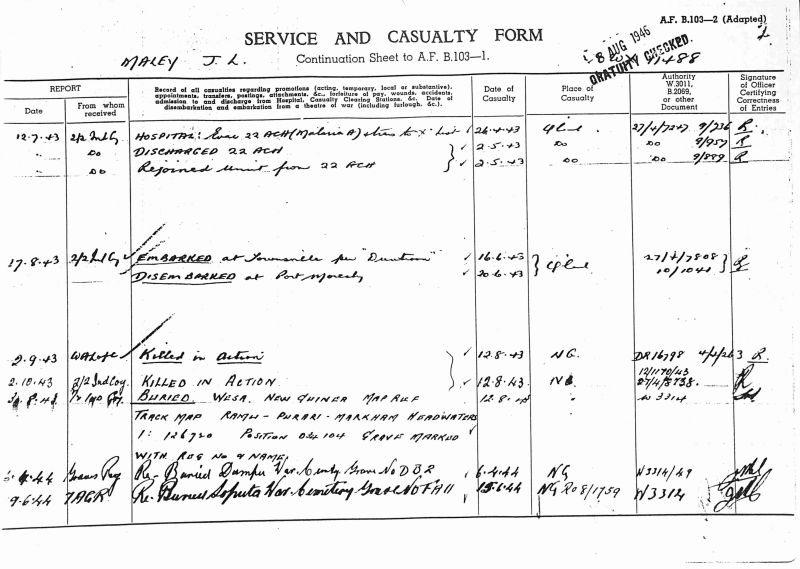 A.F. B.103—2 (Adapted)
SERVICE AND CASUALTY FORM
Continuation Sheet to A.F. B.103—1.
MALEY J. L.
8 AUG 1946
GRATUITY CHECKED.
REPORT
Date
From whom received
Record of all casualties regarding promotions (acting, temporary, local or substantive), appointments, transfers, postings, attachments, &c., forfeiture of pay, wounds, accidents, admission to and discharge from Hospital, Casualty Clearing Stations, &c. Date of disembarkation and embarkation from a theatre of war (including furlough, &c.).
Date of Casualty
Place of Casualty
Authority W.3011, B.2069, or other Document
Signature of Officer Certifying Correctness of Entries
12.7.43 2/2 Ind Cy HOSPITAL: 22 ACH (Malaria A) 26.4.43 27/4/7247 9/926 R.
" Do DISCHARGED 22 ACH 2.5.43 Do Do 9/957 R
" Do Rejoined Unit from 22 ACH 2.5.43 Do Do 9/889 R
17.8.43 2/2 Ind Cy EMBARKED at Townsville per "Duntroon" 16.6.43 27/4/7808
DISEMBARKED at Port Moresby 20.6.43 10/1041 R
2.9.43 Killed in Action 12.8.43 NG. DR16798 R.
2.10.43 2/2 Ind Coy KILLED IN ACTION 12.8.43 NG 12/1170/43 27/4/8738. R
BURIED WESA. NEW GUINEA MAP REF 12.8.43 " W3314
TRACK MAP RAMU - PURARI - MARKHAM HEADWATERS
1: 126720 POSITION 024104 GRAVE MARKED
WITH REG NO & NAME.
6.4.44 Graves Reg Re-Buried Dumpu War Cemty Grave No DB2 6.4.44 NG W3314/49
9.6.44 7AGR Re-Buried Soputa War Cemetery Grave No FA11 15.6.44 NG Ro8/1759 W3314